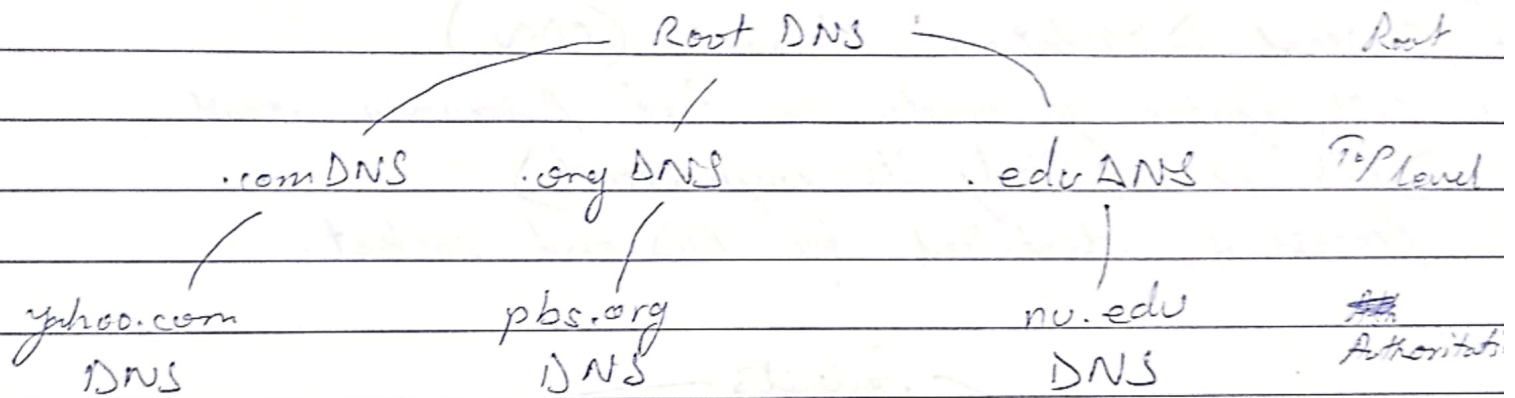 Root DNS Root
.com DNS .org DNS .edu DNS Top level
yahoo.com pbs.org nu.edu
DNS DNS DNS Authoritati